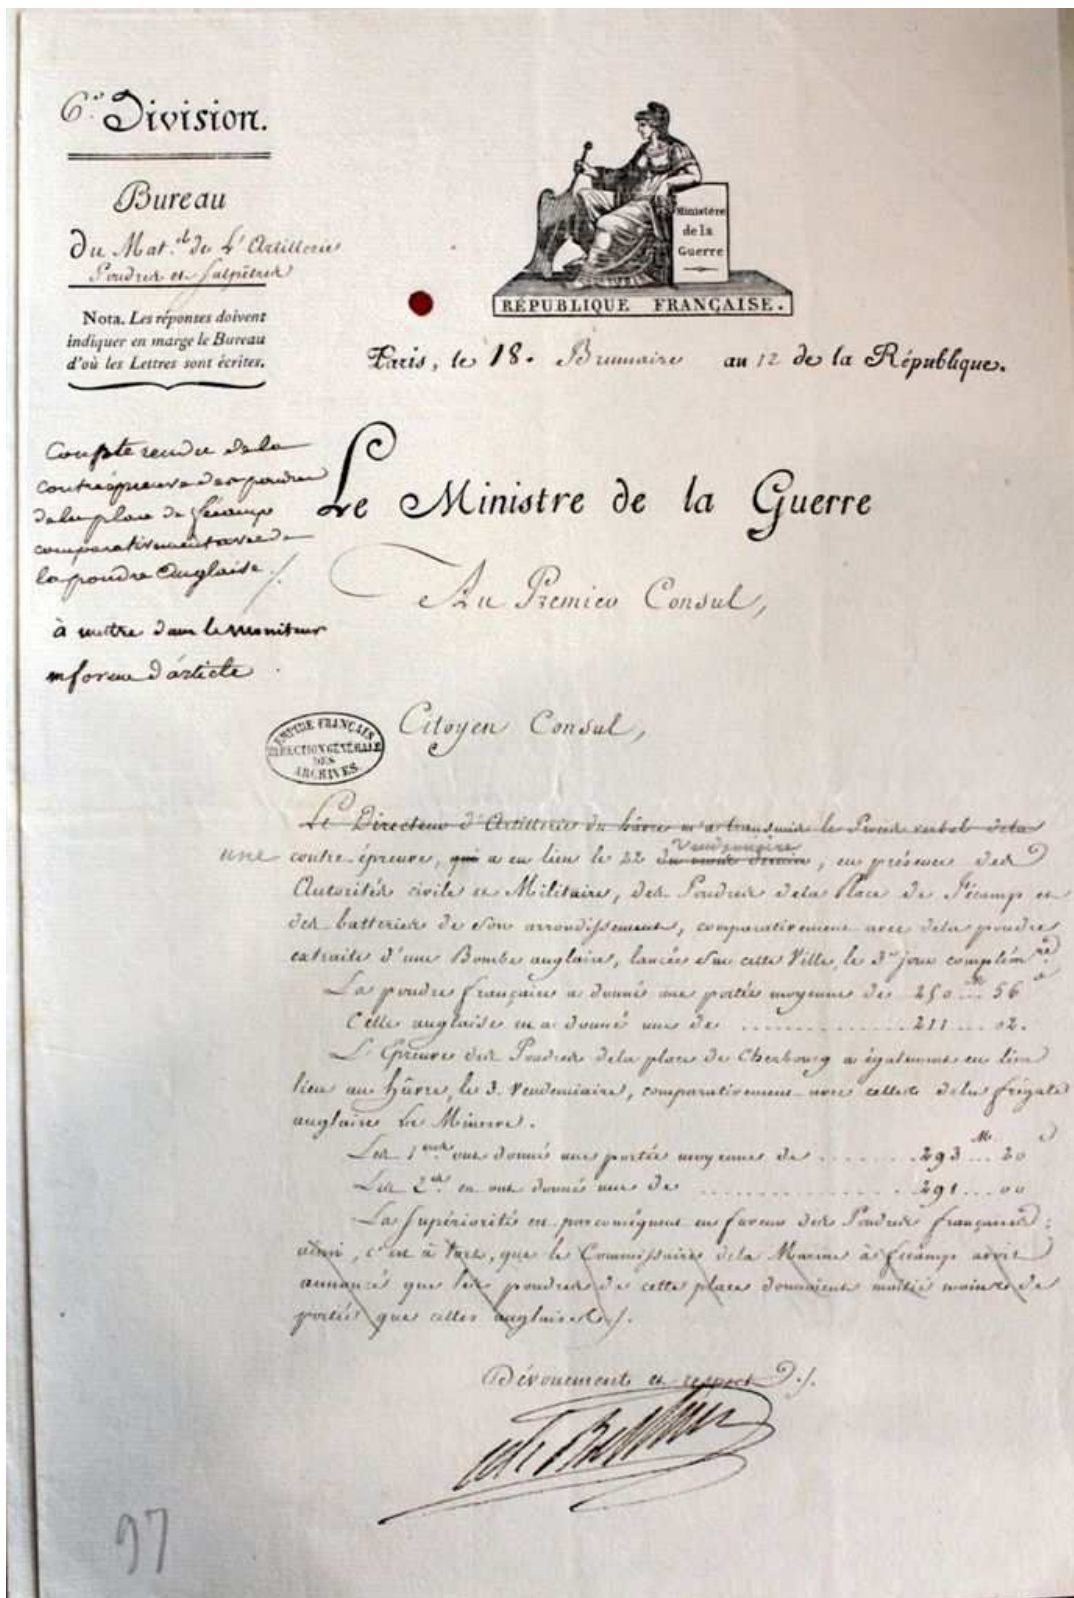 6.e Division.
Bureau
Du Mat.el de L'Artillerie
Poudres et Salpêtres
Nota. Les réponses doivent
indiquer en marge le Bureau
d'où les Lettres sont écrites.
Ministère
de la
Guerre
RÉPUBLIQUE FRANÇAISE.
Paris, le 18. Brumaire an 12 de la République.
Compte rendu de la
contre épreuve des poudres
de la place de fécamp
comparativement avec de
la poudre Anglaise ./.
à mettre dans le moniteur
en forme d'article
Le Ministre de la Guerre
Au Premier Consul,
Citoyen Consul,
EMPIRE FRANÇAIS
DIRECTION GÉNÉRALE
DES
ARCHIVES.
Le Directeur d'Artillerie du hâvre m'a transmis le Procès verbal dela
Vendémiaire
une contre-épreuve, qui a eu lieu le 22 du mois dernier, en présence des
Autorités civile et Militaire, des Poudres dela Place de Fécamp et
des batteries de son arrondissement, comparativement avec dela poudre
extraite d'une Bombe anglaise, lancée sur cette Ville, le 3.e jour complém.re
La poudre française a donné une portée moyenne de 250 m... 56 c
Celle anglaise en a donné une de .............. 211 .... 02.
L'Epreuve des Poudres dela place de Cherbourg a également eu lieu
lieu au hâvre, le 3. Vendémiaire, comparativement avec celles dela frégate
anglaise La Minerve.
Les 1.eres ont donné une portée moyenne de ........ 293 M.... 20 c
Les 2.es en ont donné une de .............. 291 .... 00
La Supériorité est par conséquent en faveur des Poudres françaises;
ainsi, c'est à tort, que le Commissaire dela Marine à fécamp avoit
annoncé que les poudres de cette place donnaient moitié moins de
portée que celles anglaises ./.
Dévouement et respect ./.
97